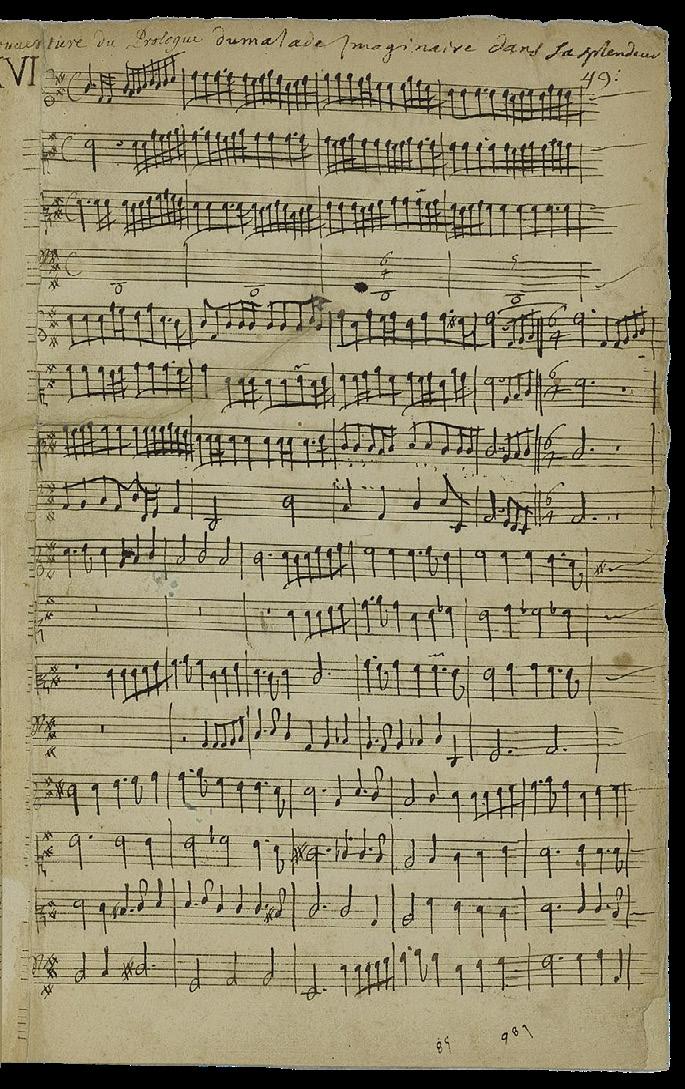 ouverture du Prologue du malade Imaginaire dans sa splendeur
XVI
49:
6
4
5
6
4
6
4
6
4
6
4